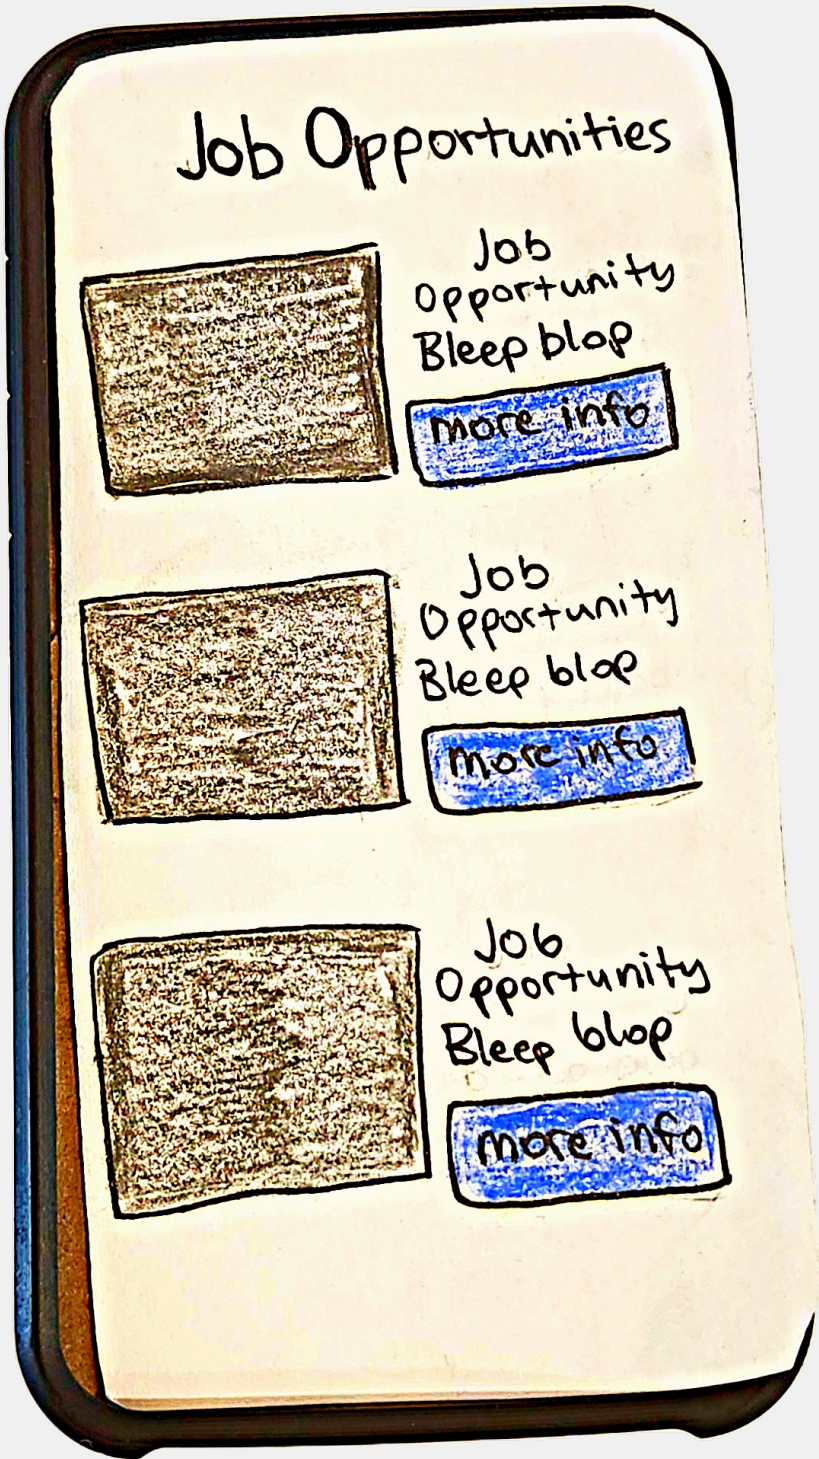 Job Opportunities
Job
Opportunity
Bleep blop
more info
Job
Opportunity
Bleep blop
more info
Job
Opportunity
Bleep blop
more info